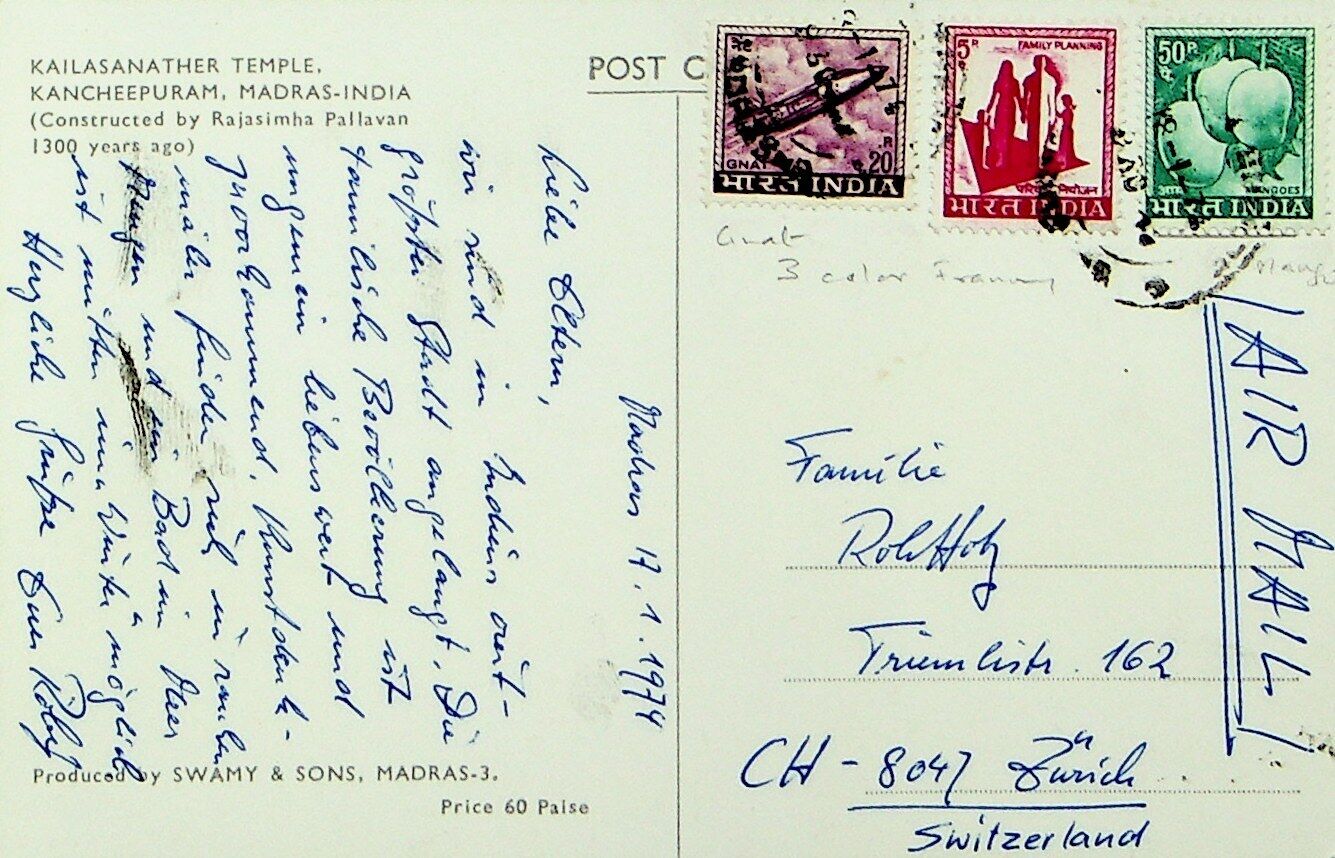 KAILASANATHER TEMPLE,
KANCHEEPURAM, MADRAS-INDIA
(Constructed by Rajasimha Pallavan
1300 years ago)
POST C
GNAT
20 P
भारत INDIA
5 P
FAMILY PLANNING
परिवार नियोजन
भारत INDIA
50 P
आम MANGOES
भारत INDIA
Gnat
3 color
Madras 17.1.1974
Liebe Eltern,
wir sind in Indiens viert-
größter Stadt angelangt. Die
tamilische Bevölkerung ist
ungemein liebenswert und
zuvorkommend. Kunstdenk-
mäler finden sich in rauhen
Mengen und ein Bad im Meer
ist mitten im "Winter" möglich
Herzliche Grüße Euer
AIR MAIL
Familie
Triemlistr. 162
CH-8047 Zürich
Switzerland
Produced by SWAMY & SONS, MADRAS-3.
Price 60 Paise